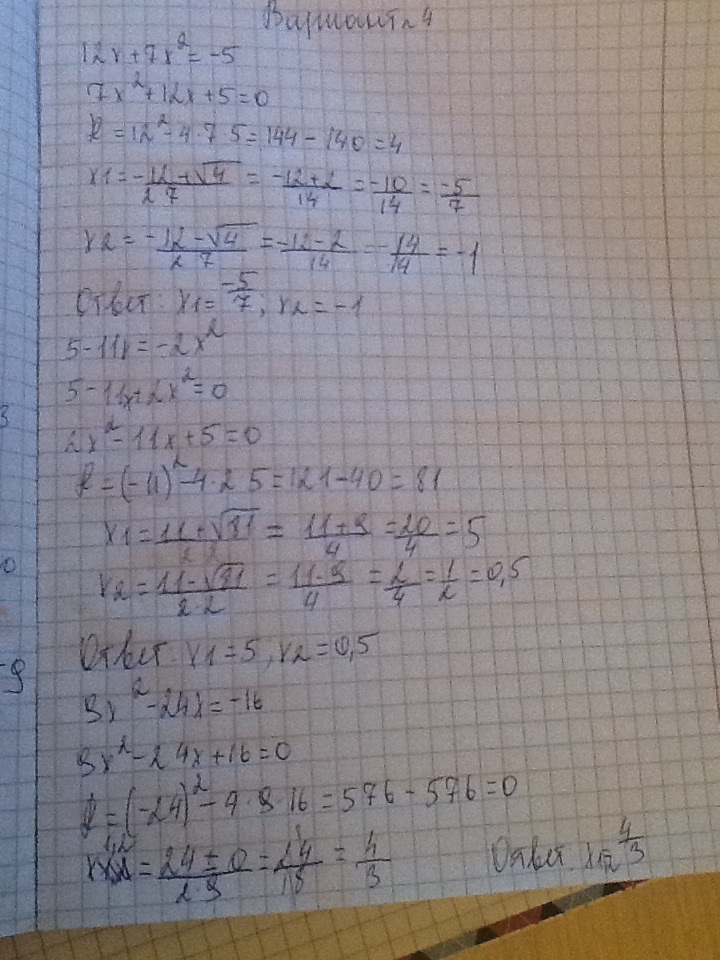 Вариант 4
12x+7x²=-5
7x²+12x+5=0
D=12²-4·7·5=144-140=4
x1=-12+√4/2·7=-12+2/14=-10/14=-5/7
x2=-12-√4/2·7=-12-2/14=-14/14=-1
Ответ: x1=-5/7; x2=-1
5-11x=-2x²
5-11x+2x²=0
2x²-11x+5=0
D=(-11)²-4·2·5=121-40=81
x1=11+√81/2·2=11+9/4=20/4=5
x2=11-√81/2·2=11-9/4=2/4=1/2=0,5
Ответ: x1=5, x2=0,5
9x²-24x=-16
9x²-24x+16=0
D=(-24)²-4·9·16=576-576=0
x1,2=24±0/2·9=24/18=4/3 Ответ: x1,2=4/3